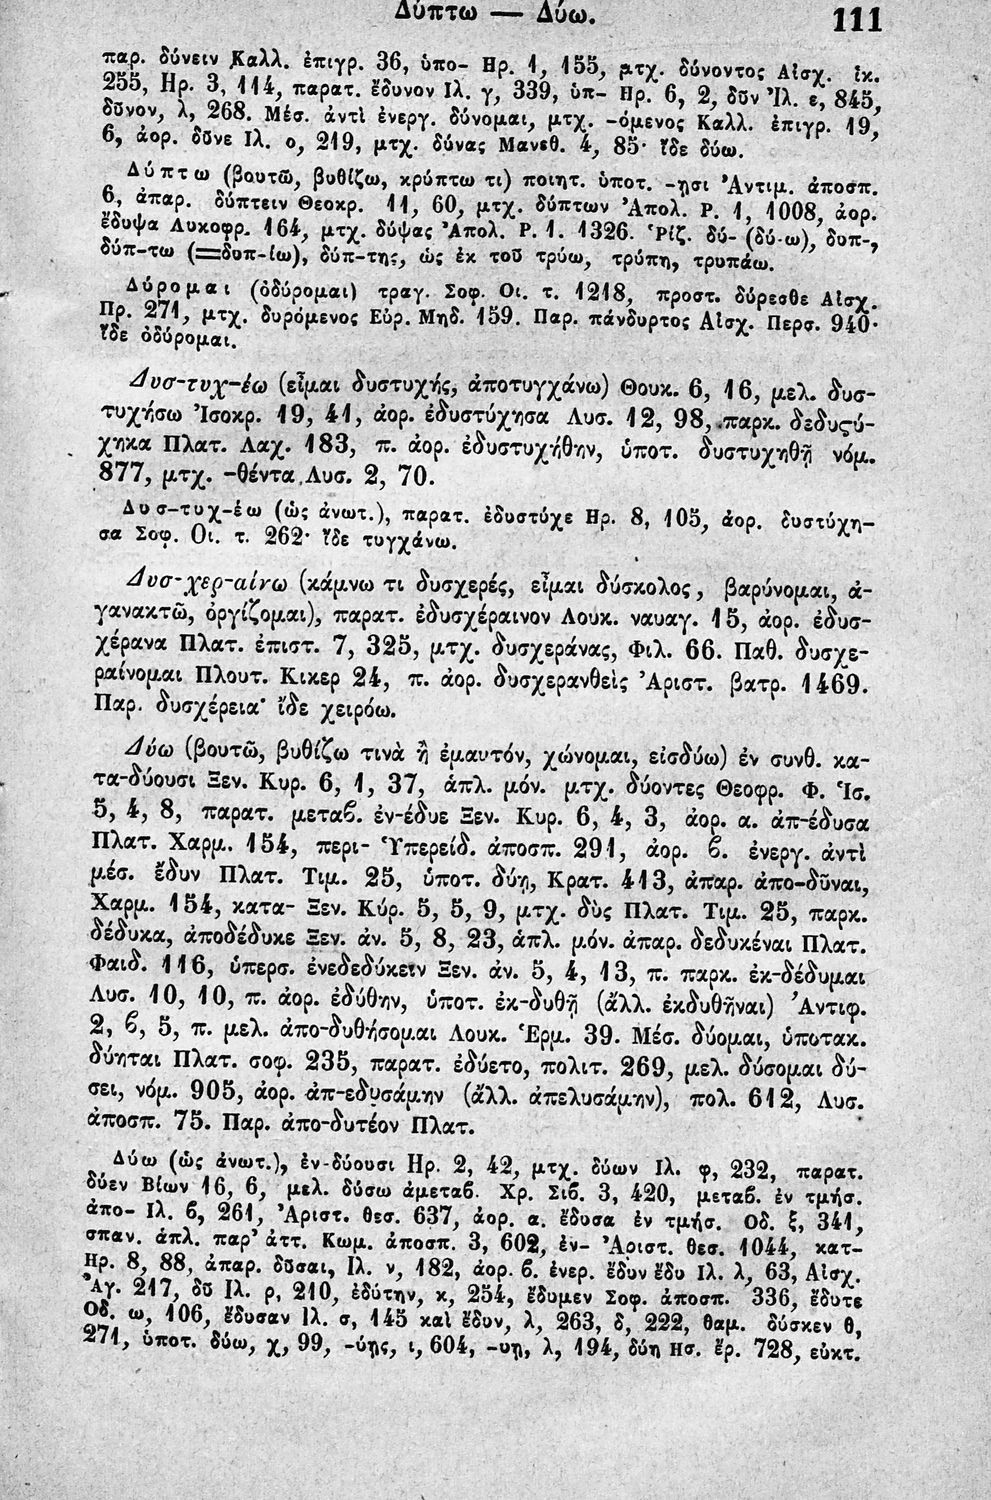 Δύπτω — Δύω. 111
παρ. δύνειν Καλλ. ἐπιγρ. 36, ὑπο- Ηρ. 1, 155, μτχ. δύνοντος Αἰσχ. ἱκ.
255, Ηρ. 3, 114, παρατ. ἔδυνον Ιλ. γ, 339, ὑπ- Ηρ. 6, 2, δῦν Ἰλ. ε, 845,
δῦνον, λ, 268. Μέσ. ἀντὶ ἐνεργ. δύνομαι, μτχ. -όμενος Καλλ. ἐπιγρ. 19,
6, ἀορ. δῦνε Ιλ. ο, 219, μτχ. δύνας Μανεθ. 4, 85· ἴδε δύω.
Δύπτω (βουτῶ, βυθίζω, κρύπτω τι) ποιητ. ὑποτ. -ῃσι Ἀντιμ. ἀποσπ.
6, ἀπαρ. δύπτειν Θεοκρ. 11, 60, μτχ. δύπτων Ἀπολ. Ρ. 1, 1008, ἀορ.
ἔδυψα Λυκοφρ. 164, μτχ. δύψας Ἀπολ. Ρ. 1. 1326. Ῥίζ. δύ- (δύ-ω), δυπ-,
δύπ-τω (=δυπ-ίω), δύπ-της, ὡς ἐκ τοῦ τρύω, τρύπη, τρυπάω.
Δύρομαι (ὀδύρομαι) τραγ. Σοφ. Οι. τ. 1218, προστ. δύρεσθε Αἰσχ.
Πρ. 271, μτχ. δυρόμενος Εὐρ. Μηδ. 159. Παρ. πάνδυρτος Αἰσχ. Περσ. 940·
ἴδε ὀδύρομαι.
Δυσ-τυχ-έω (εἶμαι δυστυχής, ἀποτυγχάνω) Θουκ. 6, 16, μελ. δυσ-
τυχήσω Ἰσοκρ. 19, 41, ἀορ. ἐδυστύχησα Λυσ. 12, 98, παρκ. δεδυςύ-
χηκα Πλατ. Λαχ. 183, π. ἀορ. ἐδυστυχήθην, ὑποτ. δυστυχηθῇ νόμ.
877, μτχ. -θέντα Λυσ. 2, 70.
Δυσ-τυχ-έω (ὡς ἀνωτ.), παρατ. ἐδυστύχε Ηρ. 8, 105, ἀορ. δυστύχη-
σα Σοφ. Οι. τ. 262· ἴδε τυγχάνω.
Δυσ-χερ-αίνω (κάμνω τι δυσχερές, εἶμαι δύσκολος, βαρύνομαι, ἀ-
γανακτῶ, ὀργίζομαι), παρατ. ἐδυσχέραινον Λουκ. ναυαγ. 15, ἀορ. ἐδυσ-
χέρανα Πλατ. ἐπιστ. 7, 325, μτχ. δυσχεράνας, Φιλ. 66. Παθ. δυσχε-
ραίνομαι Πλουτ. Κικερ 24, π. ἀορ. δυσχερανθεὶς Ἀριστ. βατρ. 1469.
Παρ. δυσχέρεια· ἴδε χειρόω.
Δύω (βουτῶ, βυθίζω τινὰ ἢ ἐμαυτόν, χώνομαι, εἰσδύω) ἐν συνθ. κα-
τα-δύουσι Ξεν. Κυρ. 6, 1, 37, ἁπλ. μόν. μτχ. δύοντες Θεοφρ. Φ. Ἱσ.
5, 4, 8, παρατ. μεταβ. ἐν-έδυε Ξεν. Κυρ. 6, 4, 3, ἀορ. α. ἀπ-έδυσα
Πλατ. Χαρμ. 154, περι- Ὑπερείδ. ἀποσπ. 291, ἀορ. β. ἐνεργ. ἀντὶ
μέσ. ἔδυν Πλατ. Τιμ. 25, ὑποτ. δύῃ, Κρατ. 413, ἀπαρ. ἀπο-δῦναι,
Χαρμ. 154, κατα- Ξεν. Κύρ. 5, 5, 9, μτχ. δὺς Πλατ. Τιμ. 25, παρκ.
δέδυκα, ἀποδέδυκε Ξεν. ἀν. 5, 8, 23, ἁπλ. μόν. ἀπαρ. δεδυκέναι Πλατ.
Φαιδ. 116, ὑπερσ. ἐνεδεδύκειν Ξεν. ἀν. 5, 4, 13, π. παρκ. ἐκ-δέδυμαι
Λυσ. 10, 10, π. ἀορ. ἐδύθην, ὑποτ. ἐκ-δυθῇ (ἄλλ. ἐκδυθῆναι) Ἀντιφ.
2, β, 5, π. μελ. ἀπο-δυθήσομαι Λουκ. Ἑρμ. 39. Μέσ. δύομαι, ὑποτακ.
δύηται Πλατ. σοφ. 235, παρατ. ἐδύετο, πολιτ. 269, μελ. δύσομαι δύ-
σει, νόμ. 905, ἀορ. ἀπ-εδυσάμην (ἄλλ. ἀπελυσάμην), πολ. 612, Λυσ.
ἀποσπ. 75. Παρ. ἀπο-δυτέον Πλατ.
Δύω (ὡς ἀνωτ.), ἐν-δύουσι Ηρ. 2, 42, μτχ. δύων Ιλ. φ, 232, παρατ.
δύεν Βίων 16, 6, μελ. δύσω ἀμεταβ. Χρ. Σιβ. 3, 420, μεταβ. ἐν τμήσ.
ἀπο- Ιλ. β, 261, Ἀριστ. θεσ. 637, ἀορ. α. ἔδυσα ἐν τμήσ. Οδ. ξ, 341,
σπαν. ἁπλ. παρ' ἀττ. Κωμ. ἀποσπ. 3, 602, ἐν- Ἀριστ. θεσ. 1044, κατ-
Ηρ. 8, 88, ἀπαρ. δῦσαι, Ιλ. ν, 182, ἀορ. β. ἐνερ. ἔδυν ἔδυ Ιλ. λ, 63, Αἰσχ.
Ἀγ. 217, δῦ Ιλ. ρ, 210, ἐδύτην, κ, 254, ἔδυμεν Σοφ. ἀποσπ. 336, ἔδυτε
Οδ. ω, 106, ἔδυσαν Ιλ. σ, 145 καὶ ἔδυν, λ, 263, δ, 222, θαμ. δύσκεν θ,
271, ὑποτ. δύω, χ, 99, -ύῃς, ι, 604, -υῃ, λ, 194, δύη Ησ. ἔρ. 728, εὐκτ.